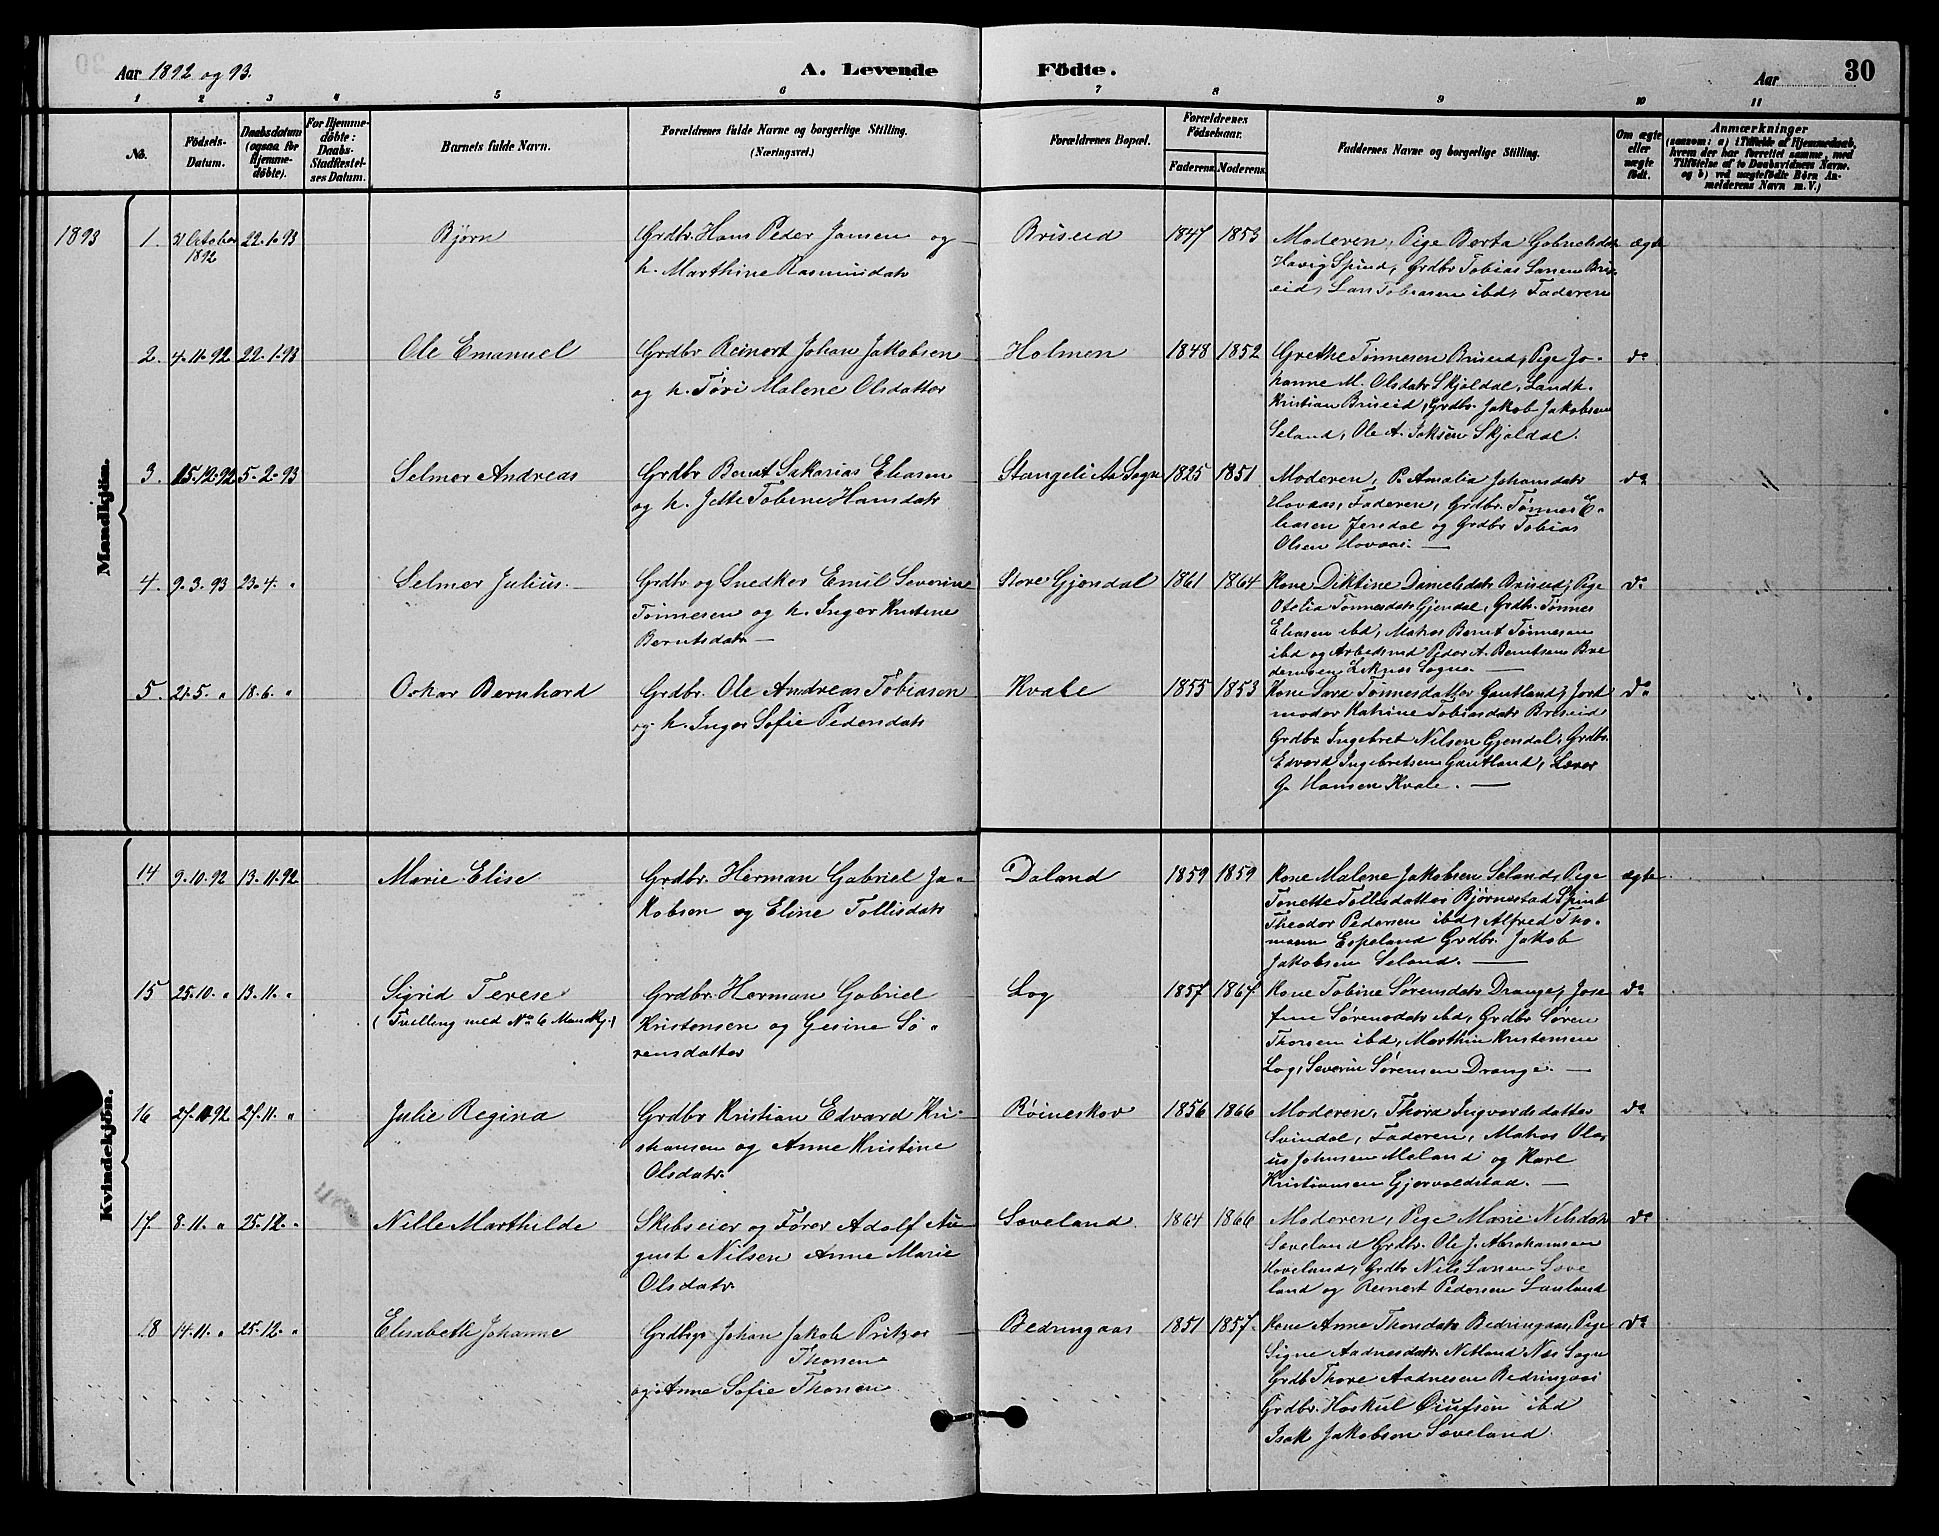 Aar 1892 og 93.
A. Levende Födte.
Aar
30
1 2 3 4 5 6 7 8 9 10 11
No.
Födsels-Datum.
Daabsdatum (ogsaa for Hjemme-döbte).
For Hjemme-döbte: Daabs-Stadfæstel-ses Datum.
Barnets fulde Navn.
Forældrenes fulde Navne og borgerlige Stilling. (Næringsvei.)
Forældrenes Bopæl.
Forældrenes Födselsaar.
Faderens. Moderens.
Faddernes Navne og borgerlige Stilling.
Om ægte eller uægte födt.
Anmærkninger (saasom: a) i Tilfælde af Hjemmedaab, hvem der har forrettet samme, med Tilföielse af to Daabsvidners Navne, og b) ved uægtefödte Börn An-melderens Navn m. V.)
Mandkjön.
1893 1. 21 October 1892 22.1.93 Bjørn Grdbr. Hans Peder Jansen og Briseid 1847 1853 Moderen, Pige Berta Gabrielsdatr ægte
h. Marthine Rasmusdatr Havig Spind, Grdbr Tobias Larsen Bris-
eid, Lars Tobiasen ibd, Faderen
2. 4.11.92 22.1.93 Ole Emanuel Grdbr Reinert Johan Jakobsen Holmen 1848 1852 Grethe Tønnesen Briseid, Pige Jo- do
og h. Tøri Malene Olsdatter hanne M. Olsdatr Skjoldal, Landh.
Kristian Briseid, Grdbr. Jakob Jakobsen
Seland, Ole A. Isaksen Skjoldal.
3. 15.12.92 5.2.93 Selmer Andreas Grdbr Bernt Sakarias Eliasen Stangeli Aa Sogn 1825 1851 Moderen, P. Amalia Johansdatr do
og h. Jette Tobine Hansdatr Hovaas, Faderen, Grdbr. Tønnes E-
liasen Jerdal og Grdbr Tobias
Olsen Hovaas.
4. 9.3.93 23.4. " Selmer Julius Grdbr og Snedker Emil Severin Store Gjendal 1861 1864 Kone Diktine Danielsdatr Briseid, Pige do
Tønnesen og h. Inger Kristine Otelia Tønnesdatr Gjendal, Grdbr. Tønnes
Berntsdatr Eliasen ibd, Matros Bernt Tønnesen
ibd og Arbeidsmd Peder A. Berntsen Bre
demoen Liknes Sogn.
5. 21.5. " 18.6. " Oskar Bernhard Grdbr. Ole Andreas Tobiasen Kvale 1855 1853 Kone Sara Tønnesdatter Gautland, Jord do
og h. Inger Sofie Pedersdatr moder Katrine Tobiasdatr Briseid
Grdbr Ingebret Nilsen Gjendal, Grdbr.
Edvard Ingebretsen Gautland, Lærer
G. Hansen Kvale.
Kvindekjön.
14 9.10.92 13.11.92 Marie Elise Grdbr. Herman Gabriel Ja- Daland 1859 1859 Kone Malene Jakobsen Seland, Pige ægte
kobsen og Eline Tollisdatr Tonette Tollisdatter Bjørnestad Spind
Theodor Pedersen ibd, Alfred Tho-
masen Espeland Grdbr. Jakob
Jakobsen Seland.
15 25.10. " 13.11. " Sigrid Terese Grdbr. Herman Gabriel Log 1857 1867 Kone Tobine Sørensdatr Drange, Jose do
(Tvilling med No 6 Mandkj.) Kristensen og Gesine Sø- fine Sørensdatr ibd, Grdbr Søren
rensdatter Thorsen ibd, Marthin Kristensen
Log, Severin Sørensen Drange.
16 27.11.92 27.11. " Julie Regina Grdbr Kristian Edvard Kri- Røineskov 1856 1866 Moderen, Thora Ingvardsdatter do
stiansen og Anne Kristine Svindal, Faderen, Matros Ola-
Olsdatr. us Johnsen Meland og Karl
Kristiansen Gjervoldstad.
17 8.11. " 25.12. " Nille Marthilde Skibseier og Fører Adolf Au- Sæveland 1864 1866 Moderen, Pige Marie Nilsdatr do
gust Nilsen Anne Marie Sæveland Grdbr. Ole J. Abrahamsen
Olsdatr. Hoveland, Grdbr Nils Larsen Sæve
land og Reinert Pedersen Lauland
18 14.11. " 25.12. " Elisabeth Johanne Grdbr Johan Jakob Pritzer Bedringaas 1851 1857 Kone Anne Thorsdatr Bedringaas, Pige do
Thorsen Signe Aadnesdatr. Netland Næs Sogn
og Anne Sofie Thorsen Grdb Thore Aadnesen Bedringaas
Grdbr. Hoskul Øiufsen ibd
Isak Jakobsen Sæveland.